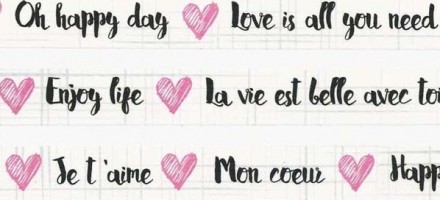 Oh happy day Love is all you need
Enjoy life La vie est belle avec toi
Je t'aime Mon coeur